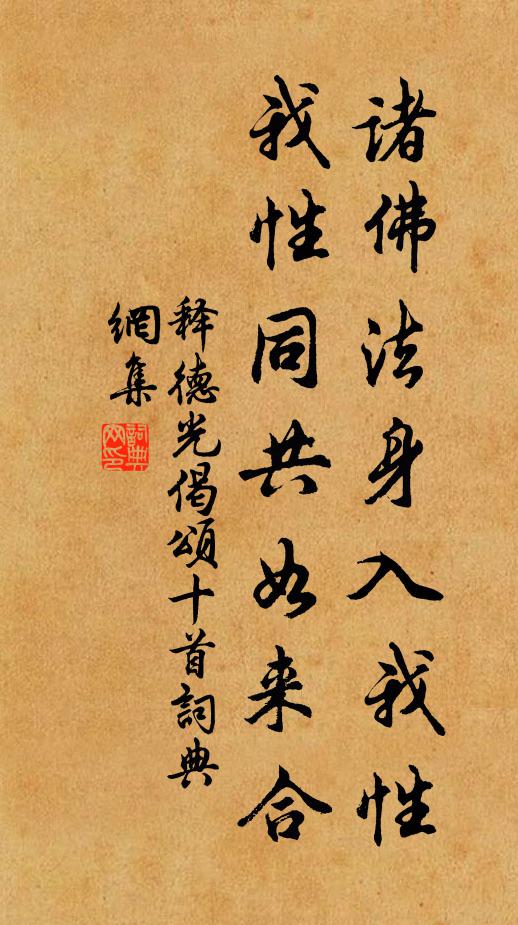 诸佛法身入我性
我性同共如来合
释德光偈颂十首詞典
網集
詞典網印